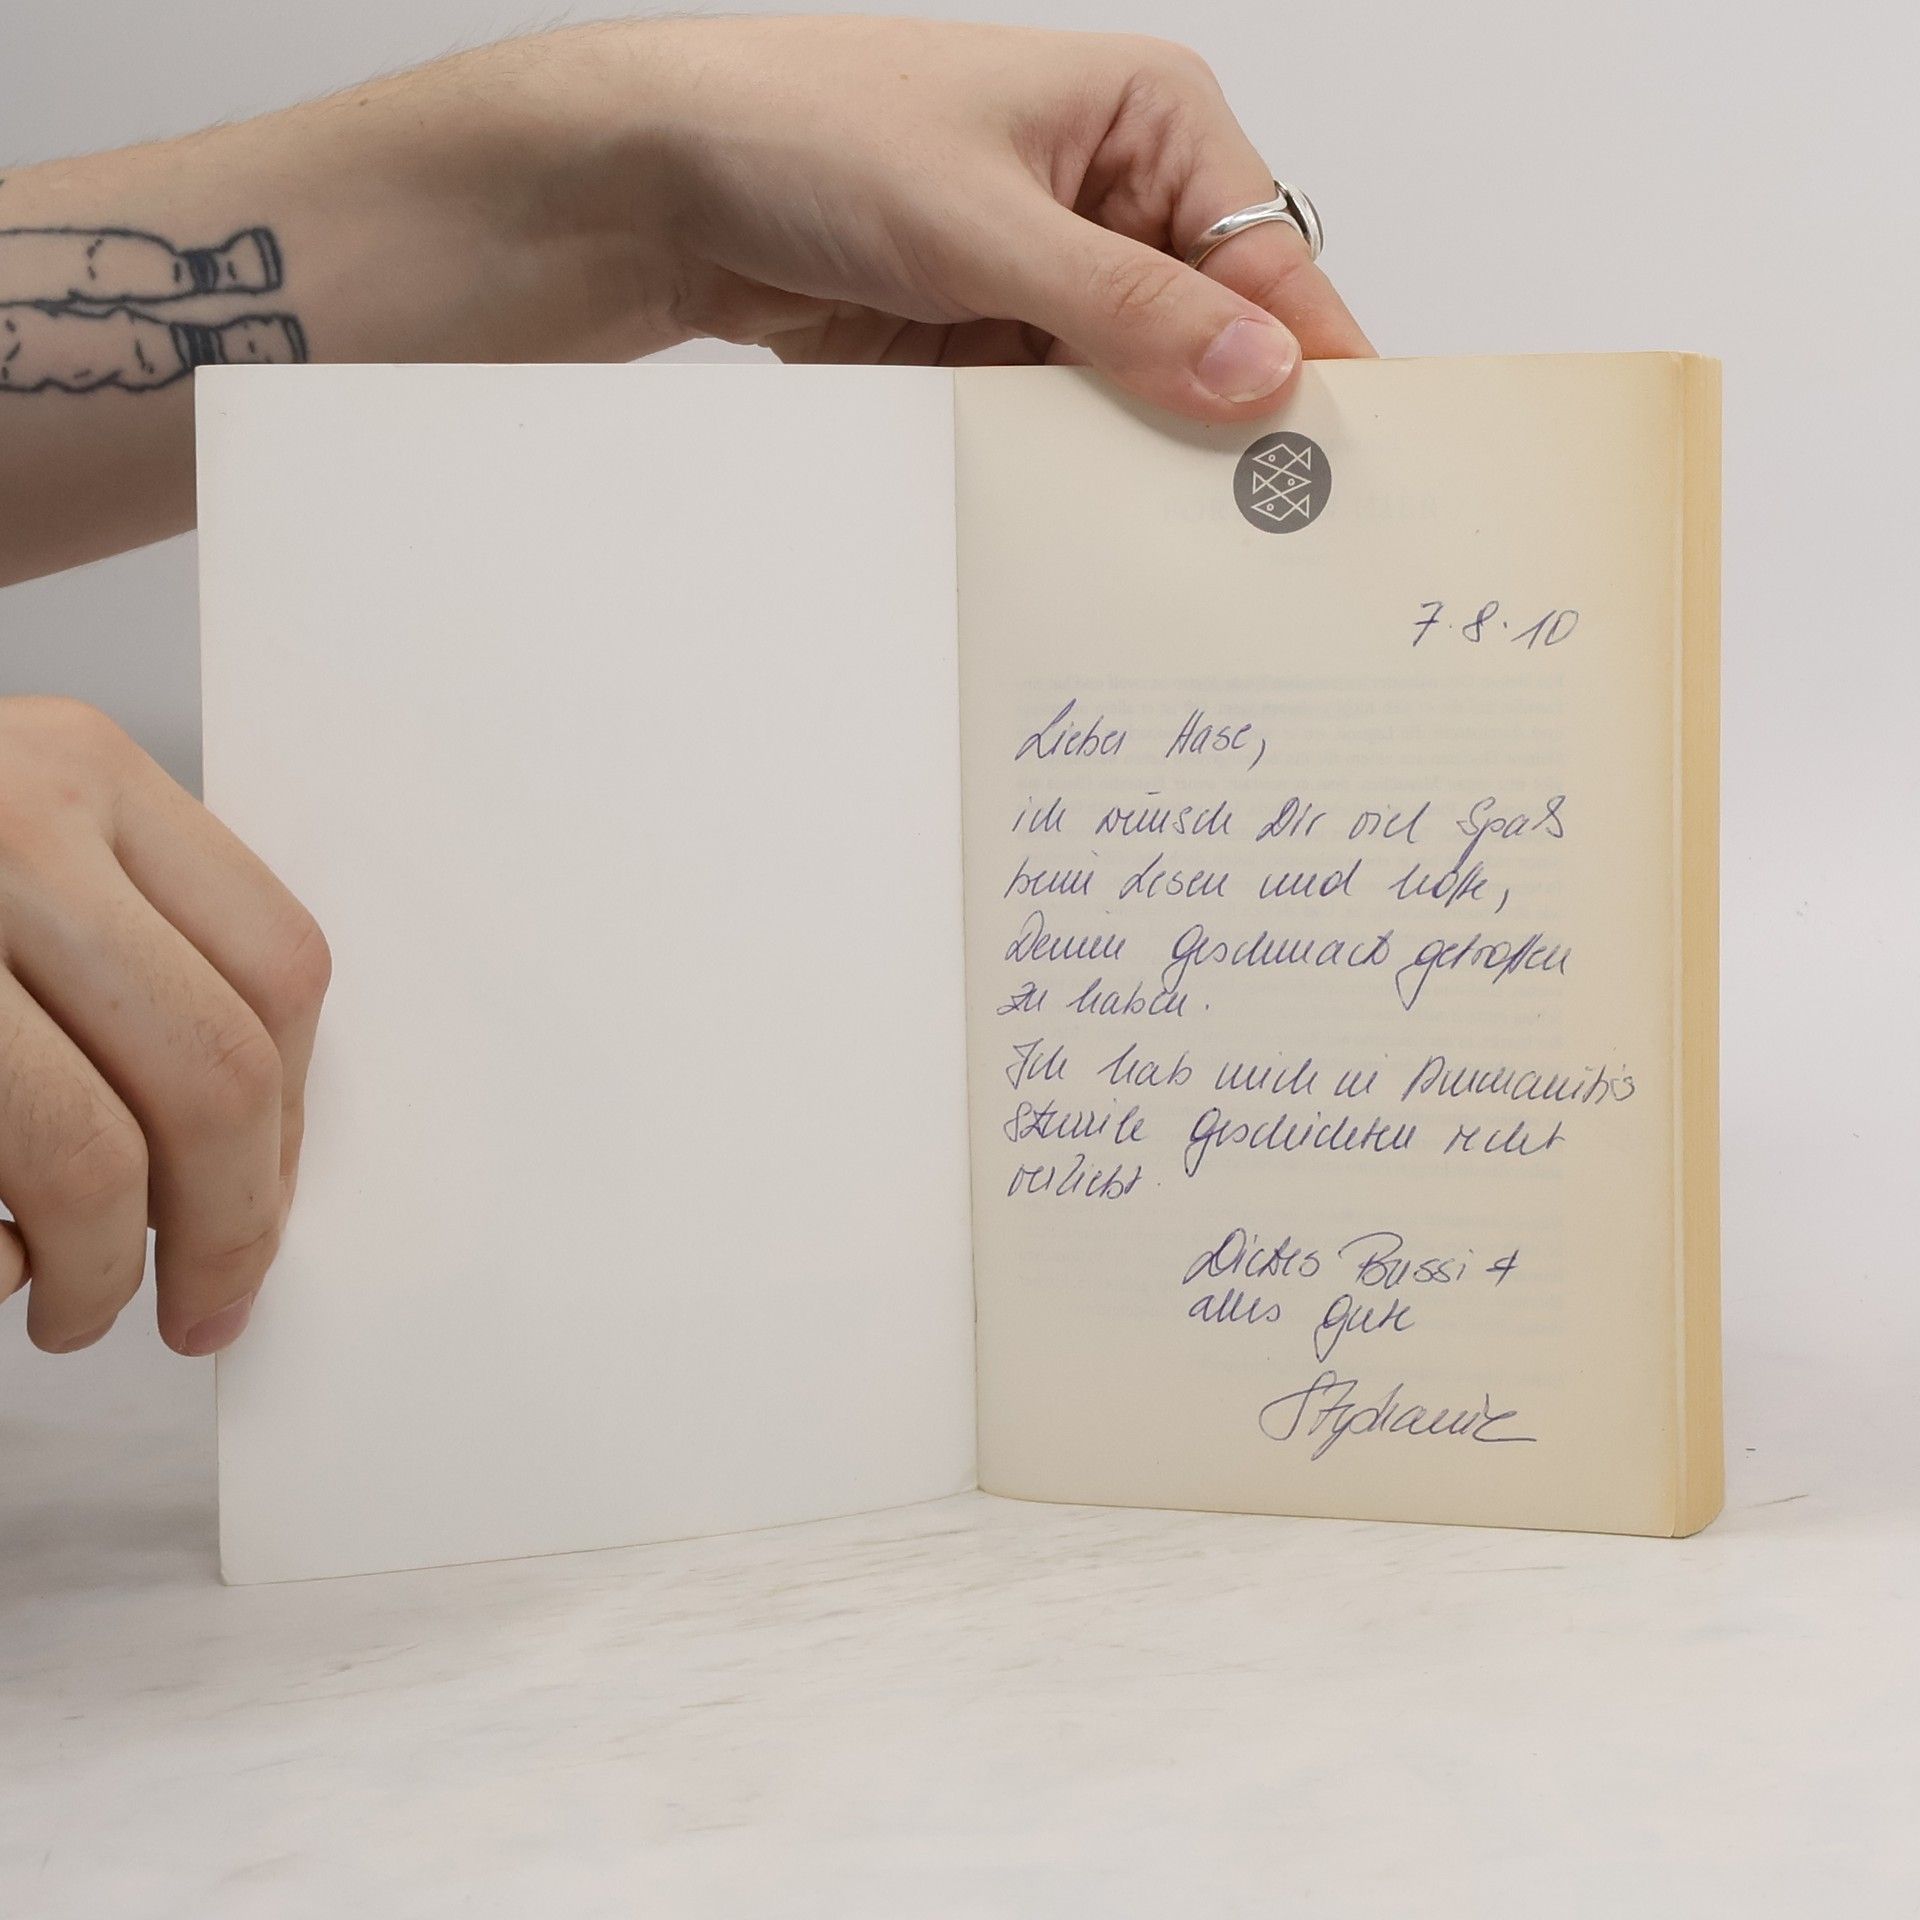 7.8.10
Lieber Hase,
ich wünsch Dir viel Spaß
beim Lesen und hoffe,
Deinen Geschmack getroffen
zu haben.
Ich hab mich in Ammanitis
Geschichten recht
verliebt.
Dickes Bussi +
alles Gute
Stephanie